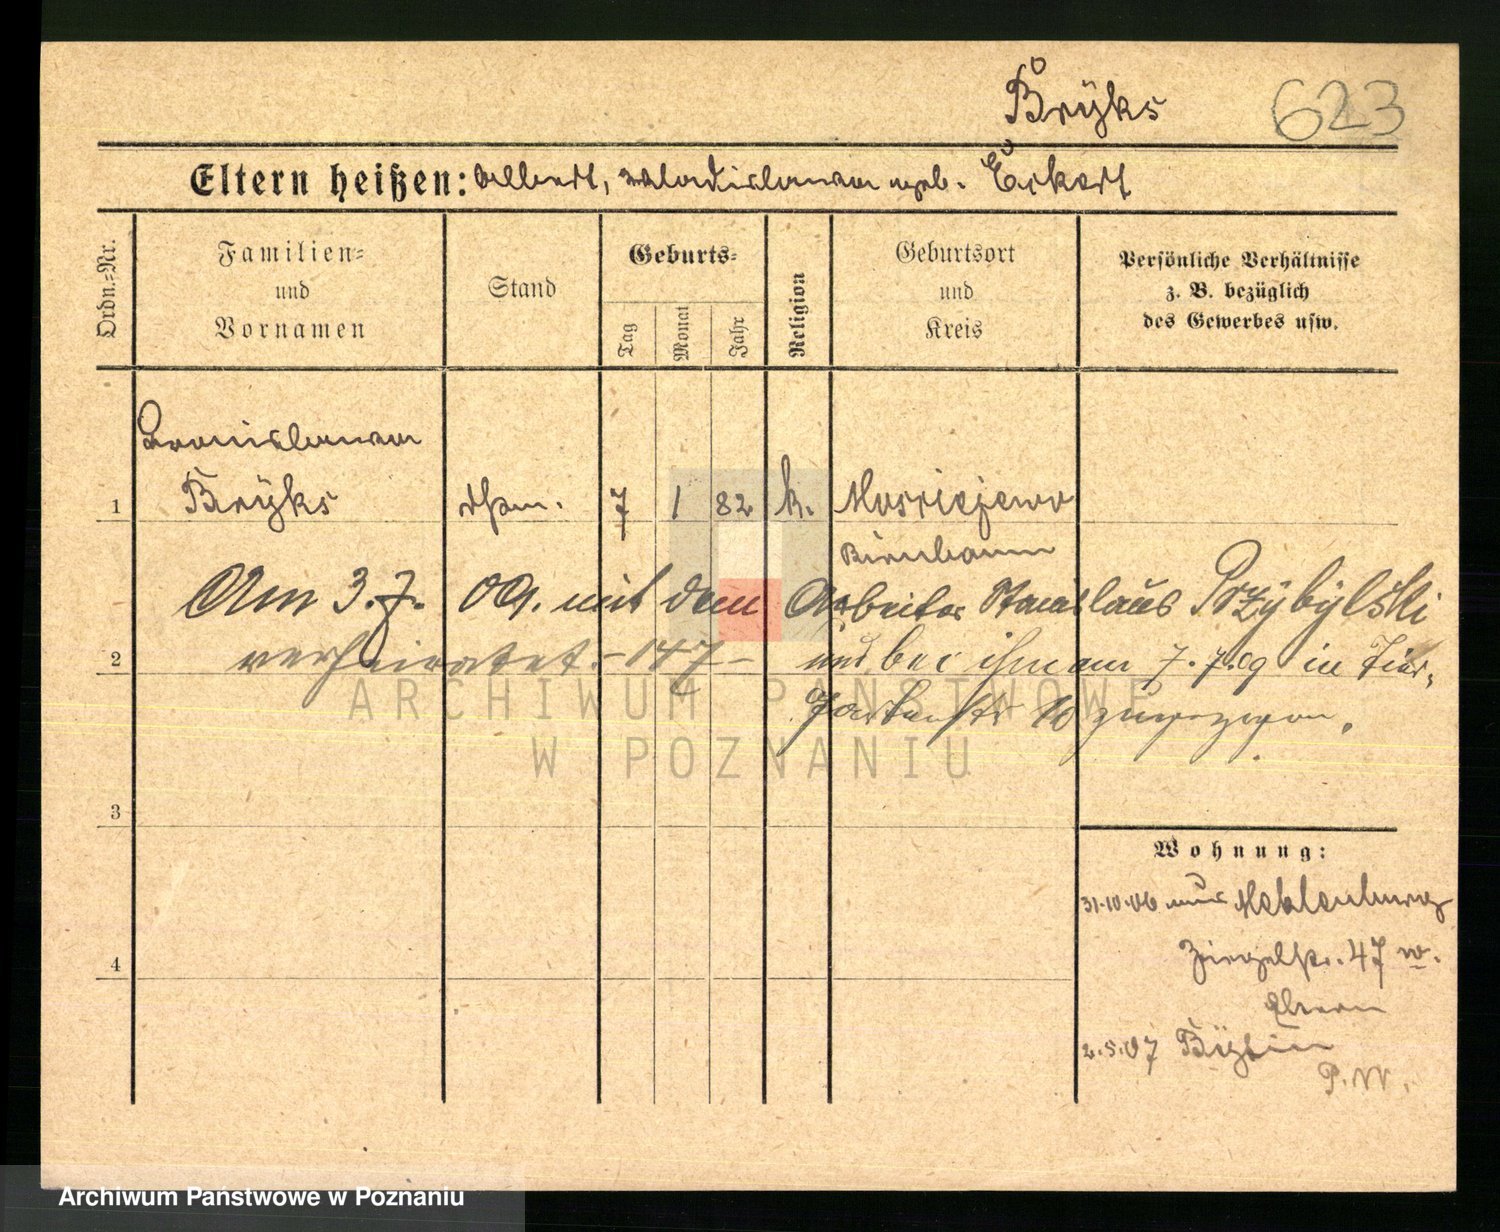 Bryks
623
Eltern heißen: Albert, Wladislawa geb. Eckert
Ordn.-Nr.
Familien-
und
Vornamen
Stand
Geburts-
Tag
Monat
Jahr
Religion
Geburtsort
und
Kreis
Persönliche Verhältnisse
z. B. bezüglich
des Gewerbes usw.
Bronislawa
1 Bryks 7 1 82 k.
Birnbaum
Am 3.7. 09. mit dem Arbeiter Stanislaus Przybylski
2 verheiratet. – 147 – und bei ihm am 7.7.09 in Tier-
gartenstr 10 zugezogen.
3
4
Wohnung:
31.10.06 aus Meklenburg
Ziegelstr. 47 w.
Eltern
2.5.07
P. W.
ARCHIWUM PAŃSTWOWE
W POZNANIU
Archiwum Państwowe w Poznaniu